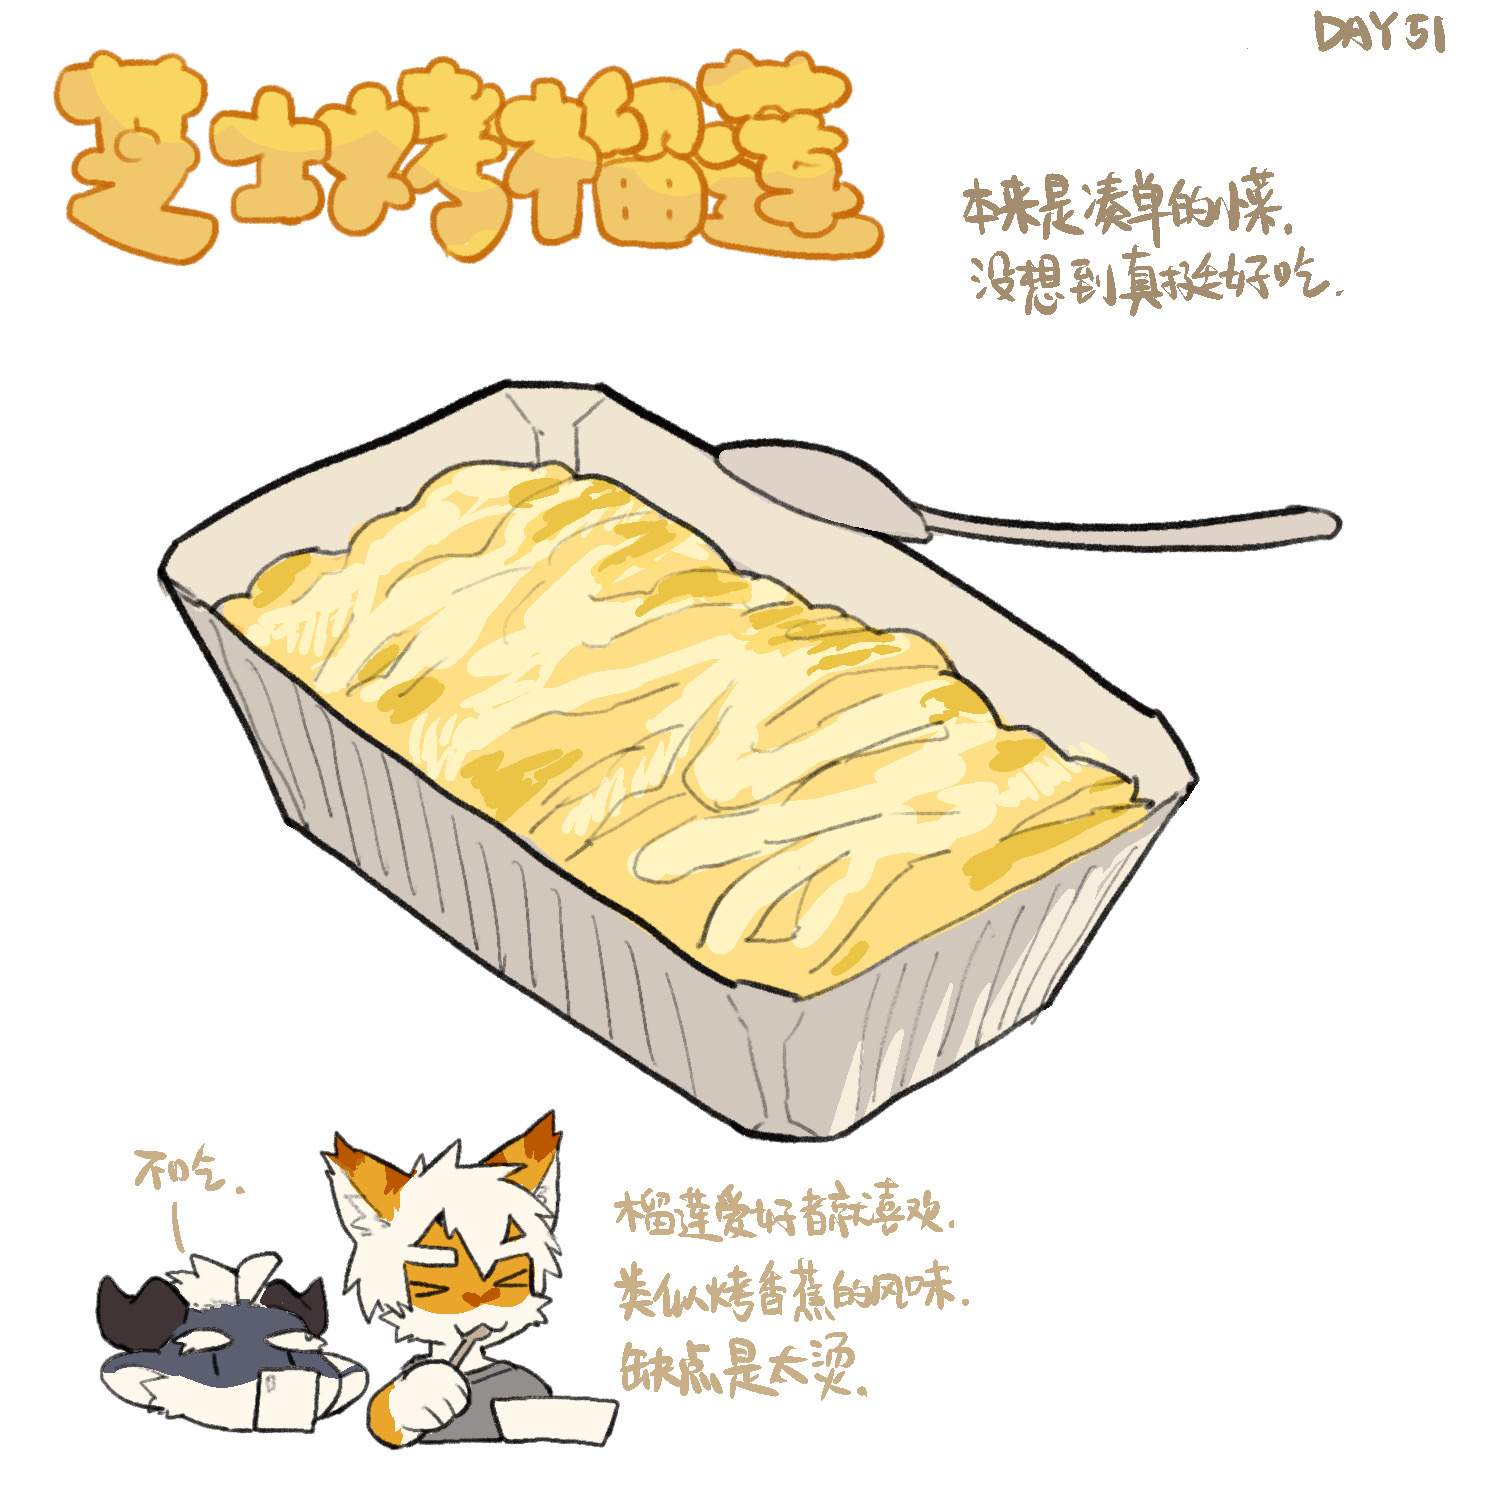 DAY 51
芝士烤榴莲
本来是凑单的小菜.
没想到真挺好吃.
不吃.
榴莲爱好者就喜欢.
类似烤香蕉的风味.
缺点是太烫.